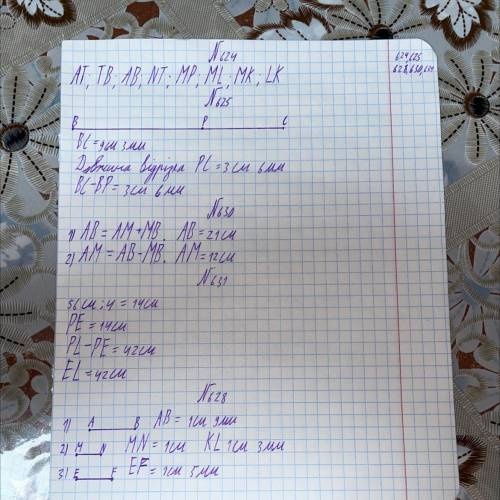 N624
624,625
628,630,631
AT; TB; AB; NT; MP; ML; MK; LK
N625
B P C
BC=9см 3мм
Довжина відрізка PC=3см 6мм
BC-BP=3см 6мм
N630
1) AB=AM+MB AB=21см
2) AM=AB-MB, AM=12см
N631
56см:4=14см
PE=14см
PL-PE=42см
EL=42см
N628
1) A B AB=1см 9мм
2) M N MN=1см KL 1см 3мм
3) E F EF=1см 5мм